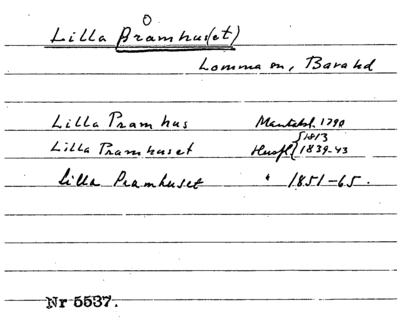 O
Lilla Bramhus(et)
Lomma sn, Bara hd
Lilla Pramhus Mantalsl. 1790
Lilla Pramhuset Husfl. { 1813
1839-43
Lilla Pramhuset " 1851-65.
Nr 5537.